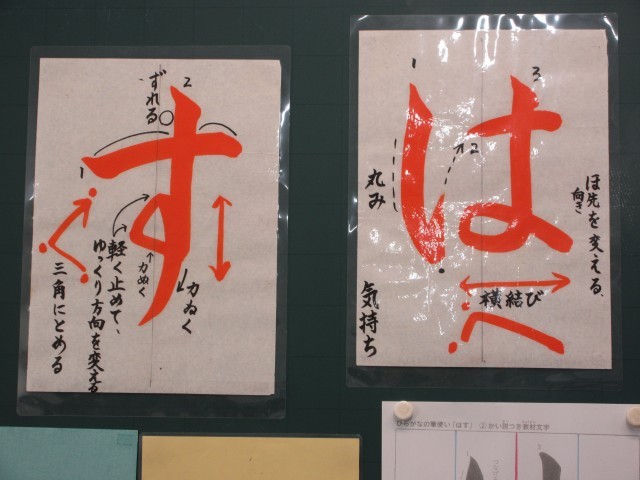 ずれる
2
す
1
力ぬく
軽く止めて、
ゆっくり方向を変える
三角にとめる
力ぬく
1
3
は
2
丸み
気持ち
ほ先を変える。
向き
横結び
ひらがなの筆使い「はす」 ②かい書つき教材文字